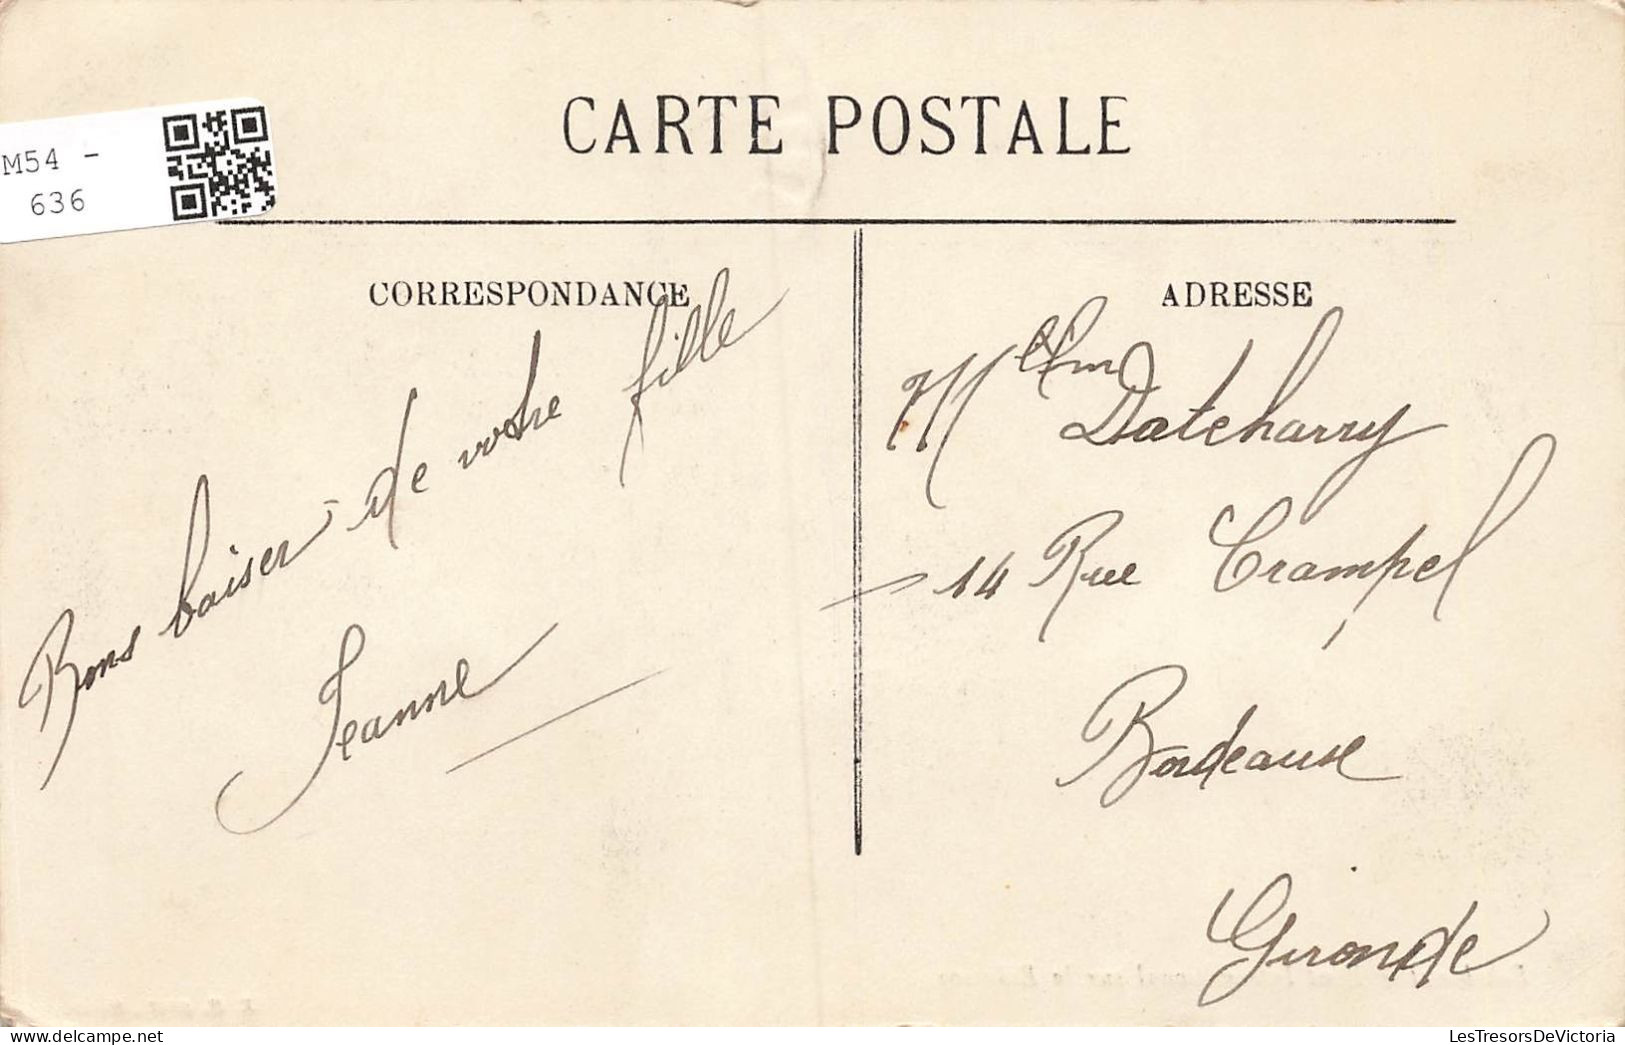 CARTE POSTALE
M54 -
636
CORRESPONDANCE
Bons baiser de votre fille
Jeanne
ADRESSE
Datcharry
14 Rue Crampel
Bordeaux
Gironde
LesTresorsDeVictoria